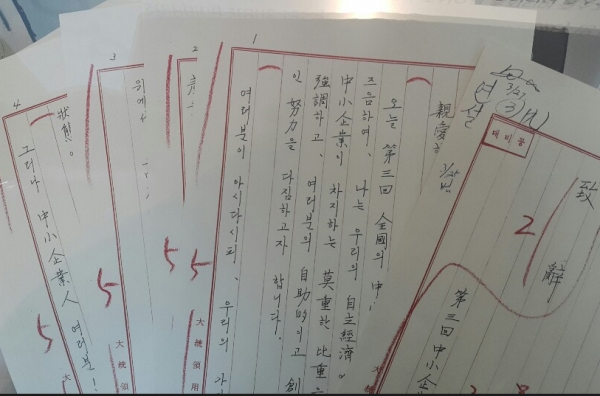 연설
3/21
(3)
대비공
2
致辭
第三回 中小企
1
親愛하
오늘 第三回 全國의 中
즈음하여, 나는 우리의 自立經濟
中小企業이 차지하는 莫重한 比重을
強調하고, 여러분의 自助的이고 創
인 努力을 다짐하고자 합니다.
여러분이 아시다시피, 우리의
大統領用
2
5
3
위에서
5
大統領用
4
狀態。
그러나 中小企業人 여러분!
5
大